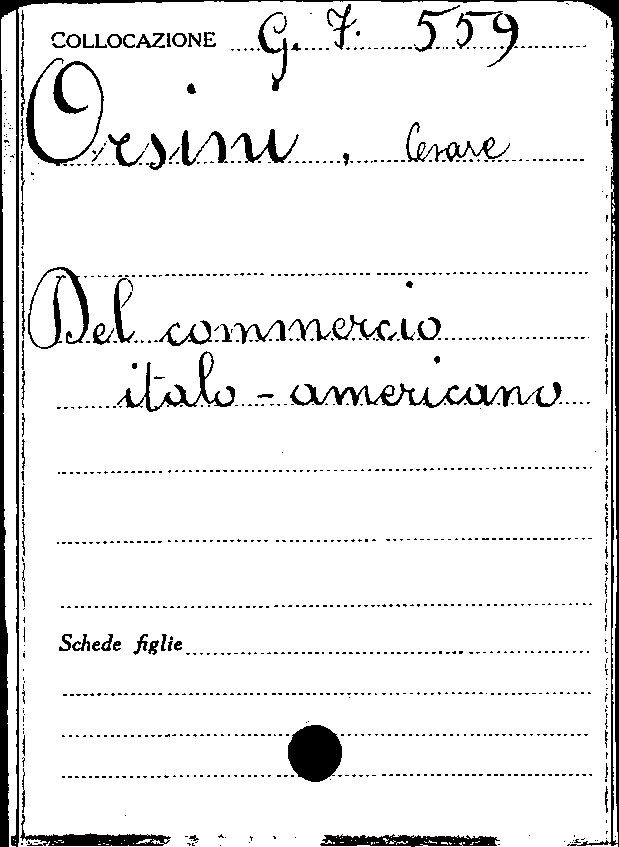 COLLOCAZIONE G. F. 559
Orsini, Cesare
Del commercio
italo - americano
Schede figlie